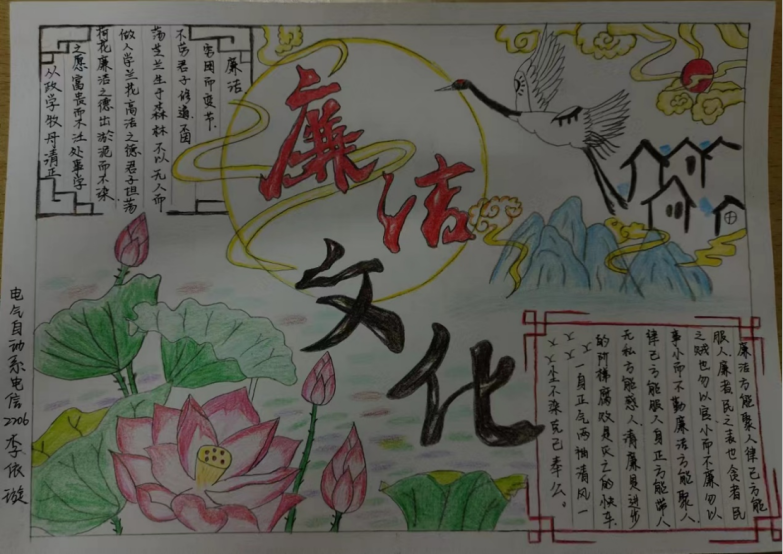 廉洁
文化
廉洁
穷困而变节
不芳君子修道
荡芝兰生于森林不以无人而
做人学兰花高洁之德君子坦荡
荷花廉洁之德出淤泥而不染
之愿富贵而不 处事学
从政学牡丹清正
廉洁方能聚人律己方能
服人廉者民之表也贪者民
之贼也勿以官小而不廉勿以
事小而不勤廉洁方能聚人
律己方能服人身正方能带人
无私方能感人清廉是进步
的阶梯腐败是灭亡的快车
一身正气两袖清风一
尘不染克己奉公。
电气自动系电信2206李依璇